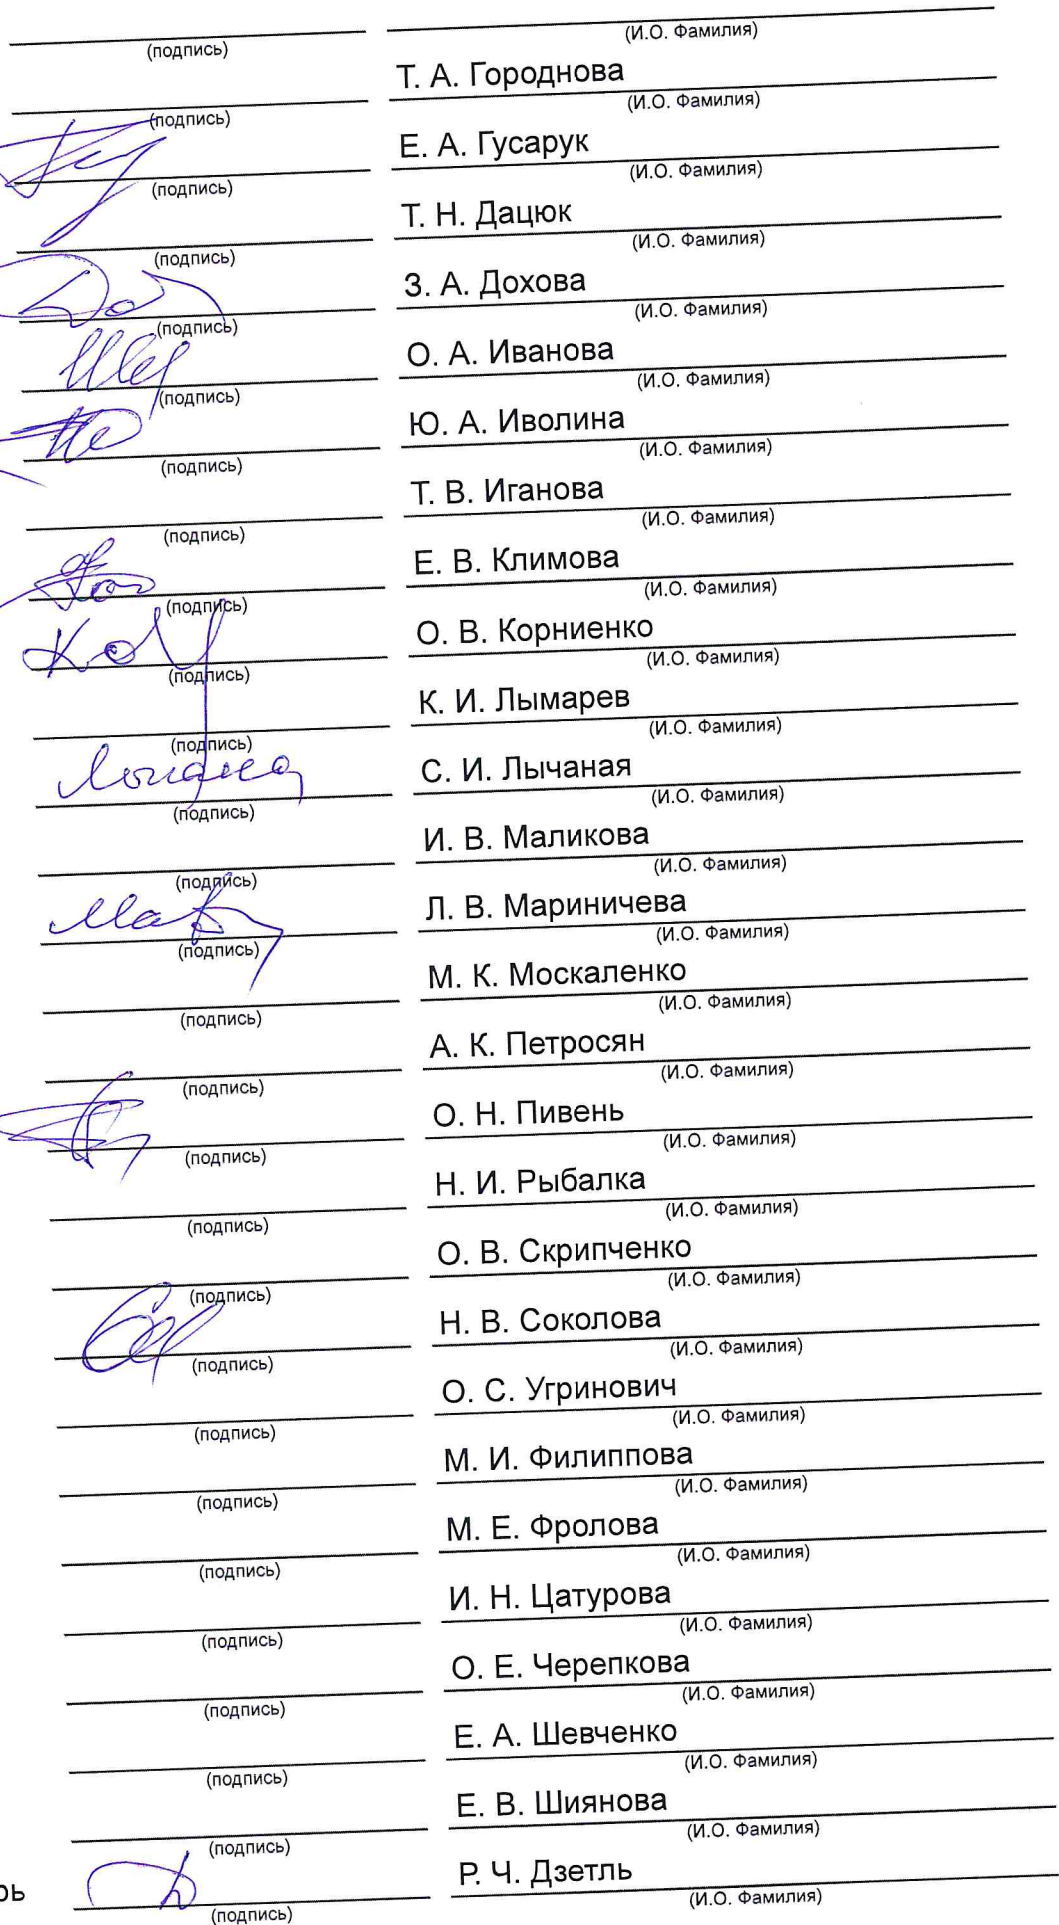 (подпись) (И.О. Фамилия)
Т. А. Городнова
(подпись) (И.О. Фамилия)
Е. А. Гусарук
(подпись) (И.О. Фамилия)
Т. Н. Дацюк
(подпись) (И.О. Фамилия)
З. А. Дохова
(подпись) (И.О. Фамилия)
О. А. Иванова
(подпись) (И.О. Фамилия)
Ю. А. Иволина
(подпись) (И.О. Фамилия)
Т. В. Иганова
(подпись) (И.О. Фамилия)
Е. В. Климова
(подпись) (И.О. Фамилия)
О. В. Корниенко
(подпись) (И.О. Фамилия)
К. И. Лымарев
(подпись) (И.О. Фамилия)
С. И. Лычаная
(подпись) (И.О. Фамилия)
И. В. Маликова
(подпись) (И.О. Фамилия)
Л. В. Мариничева
(подпись) (И.О. Фамилия)
М. К. Москаленко
(подпись) (И.О. Фамилия)
А. К. Петросян
(подпись) (И.О. Фамилия)
О. Н. Пивень
(подпись) (И.О. Фамилия)
Н. И. Рыбалка
(подпись) (И.О. Фамилия)
О. В. Скрипченко
(подпись) (И.О. Фамилия)
Н. В. Соколова
(подпись) (И.О. Фамилия)
О. С. Угринович
(подпись) (И.О. Фамилия)
М. И. Филиппова
(подпись) (И.О. Фамилия)
М. Е. Фролова
(подпись) (И.О. Фамилия)
И. Н. Цатурова
(подпись) (И.О. Фамилия)
О. Е. Черепкова
(подпись) (И.О. Фамилия)
Е. А. Шевченко
(подпись) (И.О. Фамилия)
Е. В. Шиянова
(подпись) (И.О. Фамилия)
рь Р. Ч. Дзетль
(подпись) (И.О. Фамилия)